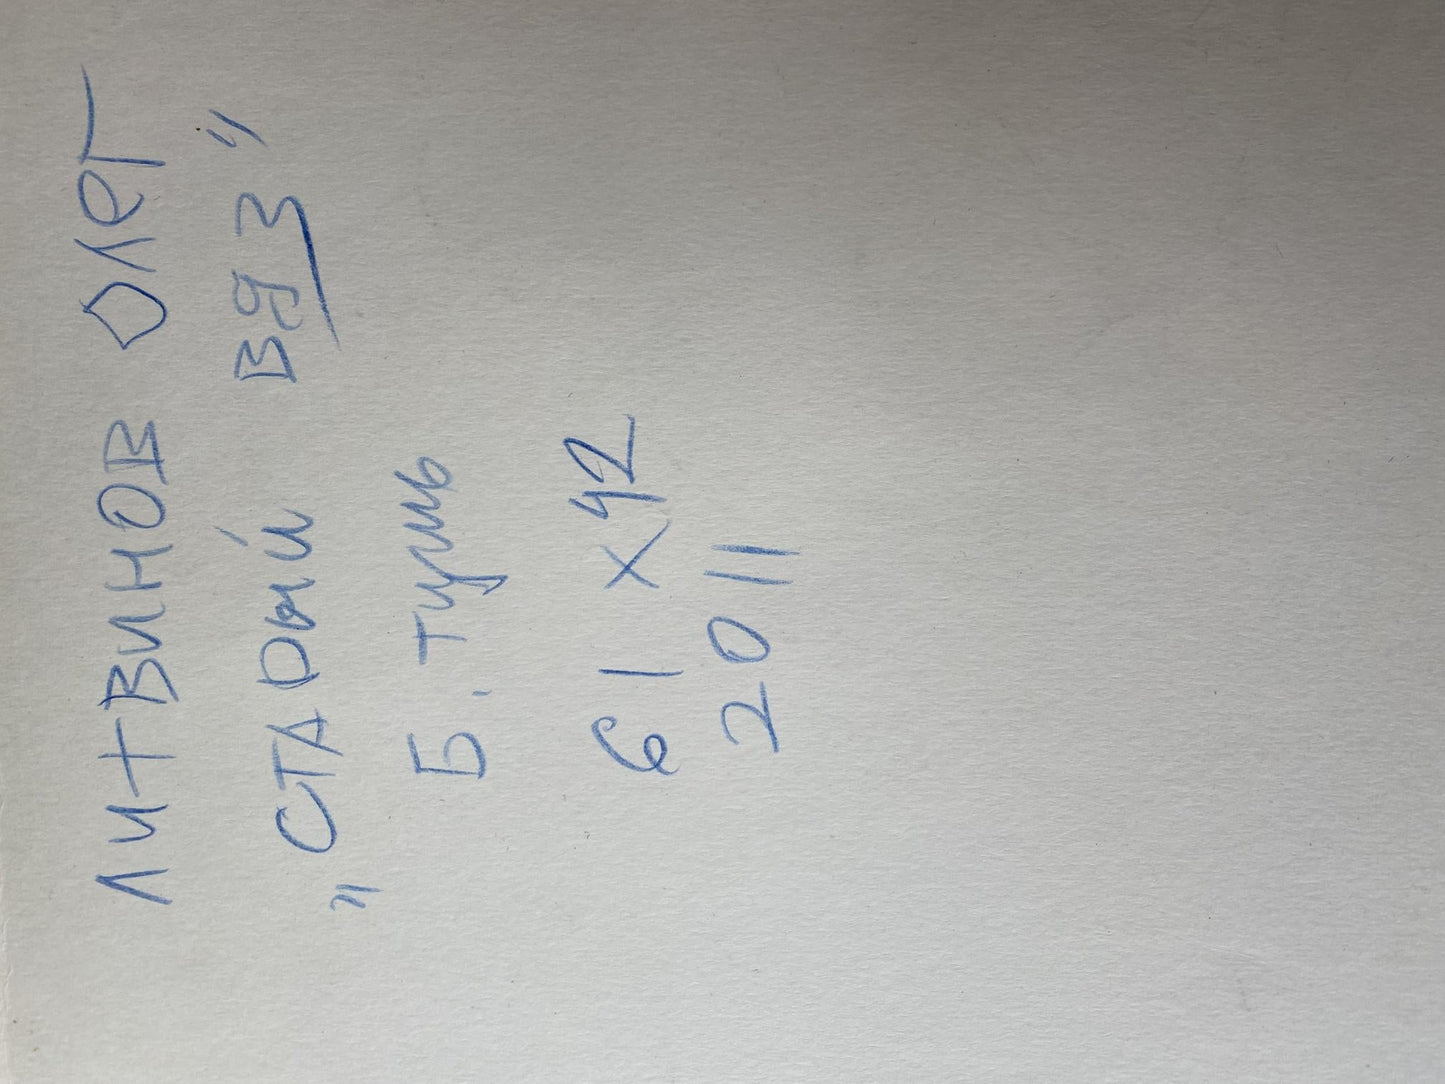 ЛИТВИНОВ ОЛЕГ
"СТАРЫЙ ВЯЗ"
Б. тушь
61 х 42
2011